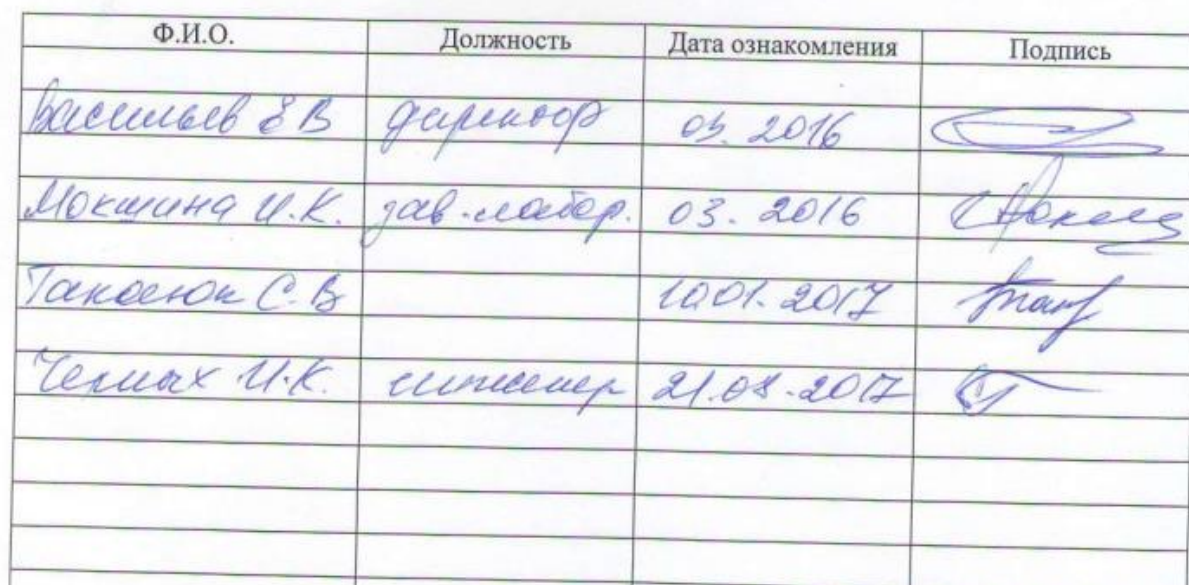 Ф.И.О. Должность Дата ознакомления Подпись
Васильев Е В директор 03. 2016
Мокшина И.К. зав. лабор. 03. 2016
С. В 10.01.2017
Черных И.К. инженер 21.08.2017